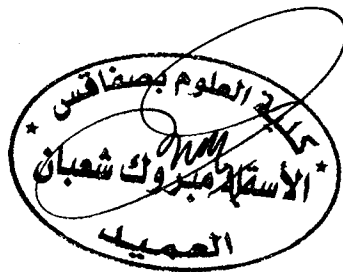 كلية العلوم بصفاقس
الأستاذ مبروك شعبان
العميد